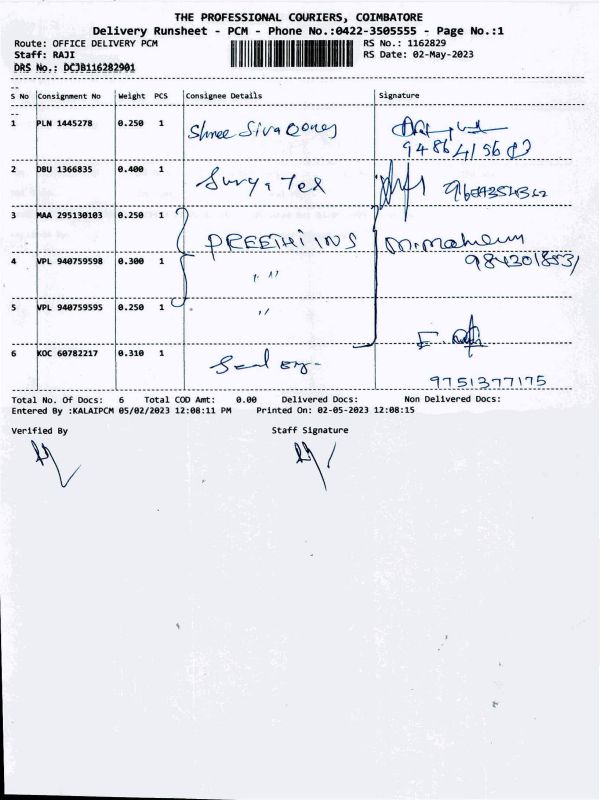 THE PROFESSIONAL COURIERS, COIMBATORE
Delivery Runsheet - PCM - Phone No.:0422-3505555 - Page No.:1
Route: OFFICE DELIVERY PCM RS No.: 1162829
Staff: RAJI RS Date: 02-May-2023
DRS No.: DCJB116282901
S No Consignment No Weight PCS Consignee Details Signature
1 PLN 1445278 0.250 1 Shree Siva
2 DBU 1366835 0.400 1 Surya Tex
3 MAA 295130103 0.250 1 PREETHI INS
4 VPL 940759598 0.300 1 " "
5 VPL 940759595 0.250 1 "
6 KOC 60782217 0.310 1
9751377175
Total No. Of Docs: 6 Total COD Amt: 0.00 Delivered Docs: Non Delivered Docs:
Entered By :KALAIPCM 05/02/2023 12:08:11 PM Printed On: 02-05-2023 12:08:15
Verified By Staff Signature